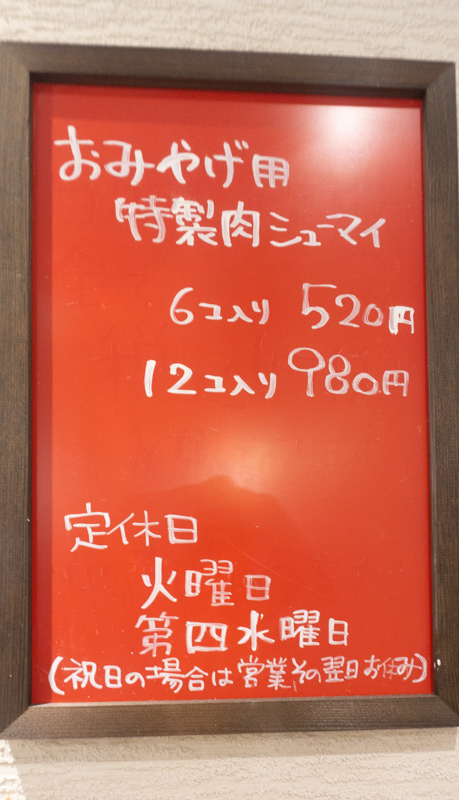 おみやげ用
特製肉シューマイ
6コ入り 520円
12コ入り 980円
定休日
火曜日
第四水曜日
(祝日の場合は営業、その翌日お休み)